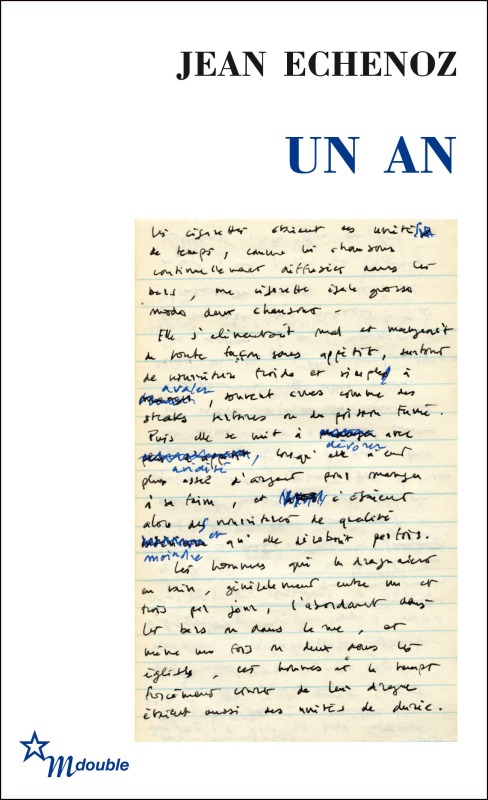 JEAN ECHENOZ
UN AN
Les cigarettes étaient des unités
de temps, comme les chansons
continuellement diffusées dans les
bars, une cigarette égale grosso
modo deux chansons.
Elle s'alimentait mal et mangeait
de toute façon sans appétit, surtout
de nourriture froide et simple à
avaler
, souvent crues comme des
steaks tartares ou du poisson fumé.
Puis elle se mit à avec
dévorer
, lorsqu'elle n'eut
avidité
plus assez d'argent pour manger
à sa faim, et c'étaient
alors des nourritures de qualité
et
qu'elle dérobait parfois.
moindre
Les hommes qui la draguaient
en vain, généralement entre un et
trois par jour, l'abordant dans
les bars ou dans la rue, et
même une fois ou deux dans les
églises, ces hommes et le temps
forcément court de leur drague
étaient aussi des unités de durée.
M double